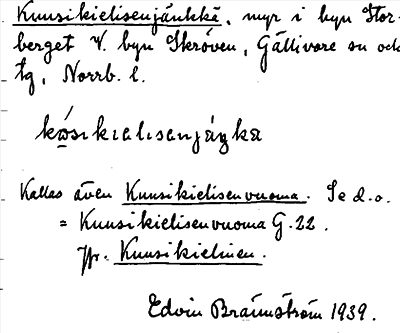 Kuusikielisenjänkkä, myr i byn Stor-
berget V. byn Skröven, Gällivare sn och
tg, Norrb. l.
kɷ́sikielisenjäŋkä
Kallas även Kuusikielisenvuoma. Se d.o.
= Kuusikielisenvuoma G.22.
Jfr. Kuusikielinen.
Edvin Brännström 1939.